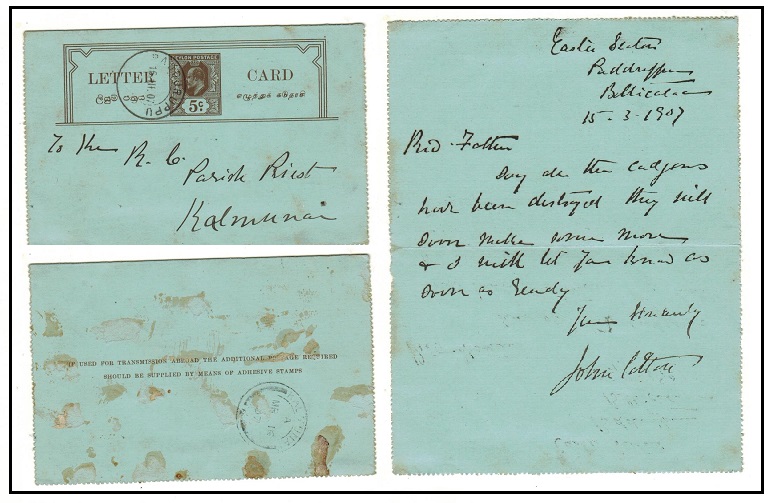 CEYLON POSTAGE
LETTER CARD
5c
To the
R. C.
Parish Priest
Kalmunai
IF USED FOR TRANSMISSION ABROAD THE ADDITIONAL POSTAGE REQUIRED
SHOULD BE SUPPLIED BY MEANS OF ADHESIVE STAMPS
15-3-1907
Rvd. Father
the cadjans
have been destroyed they will
soon make some more
& I will let you know as
soon as ready
Yours Sincerely
John Cotton